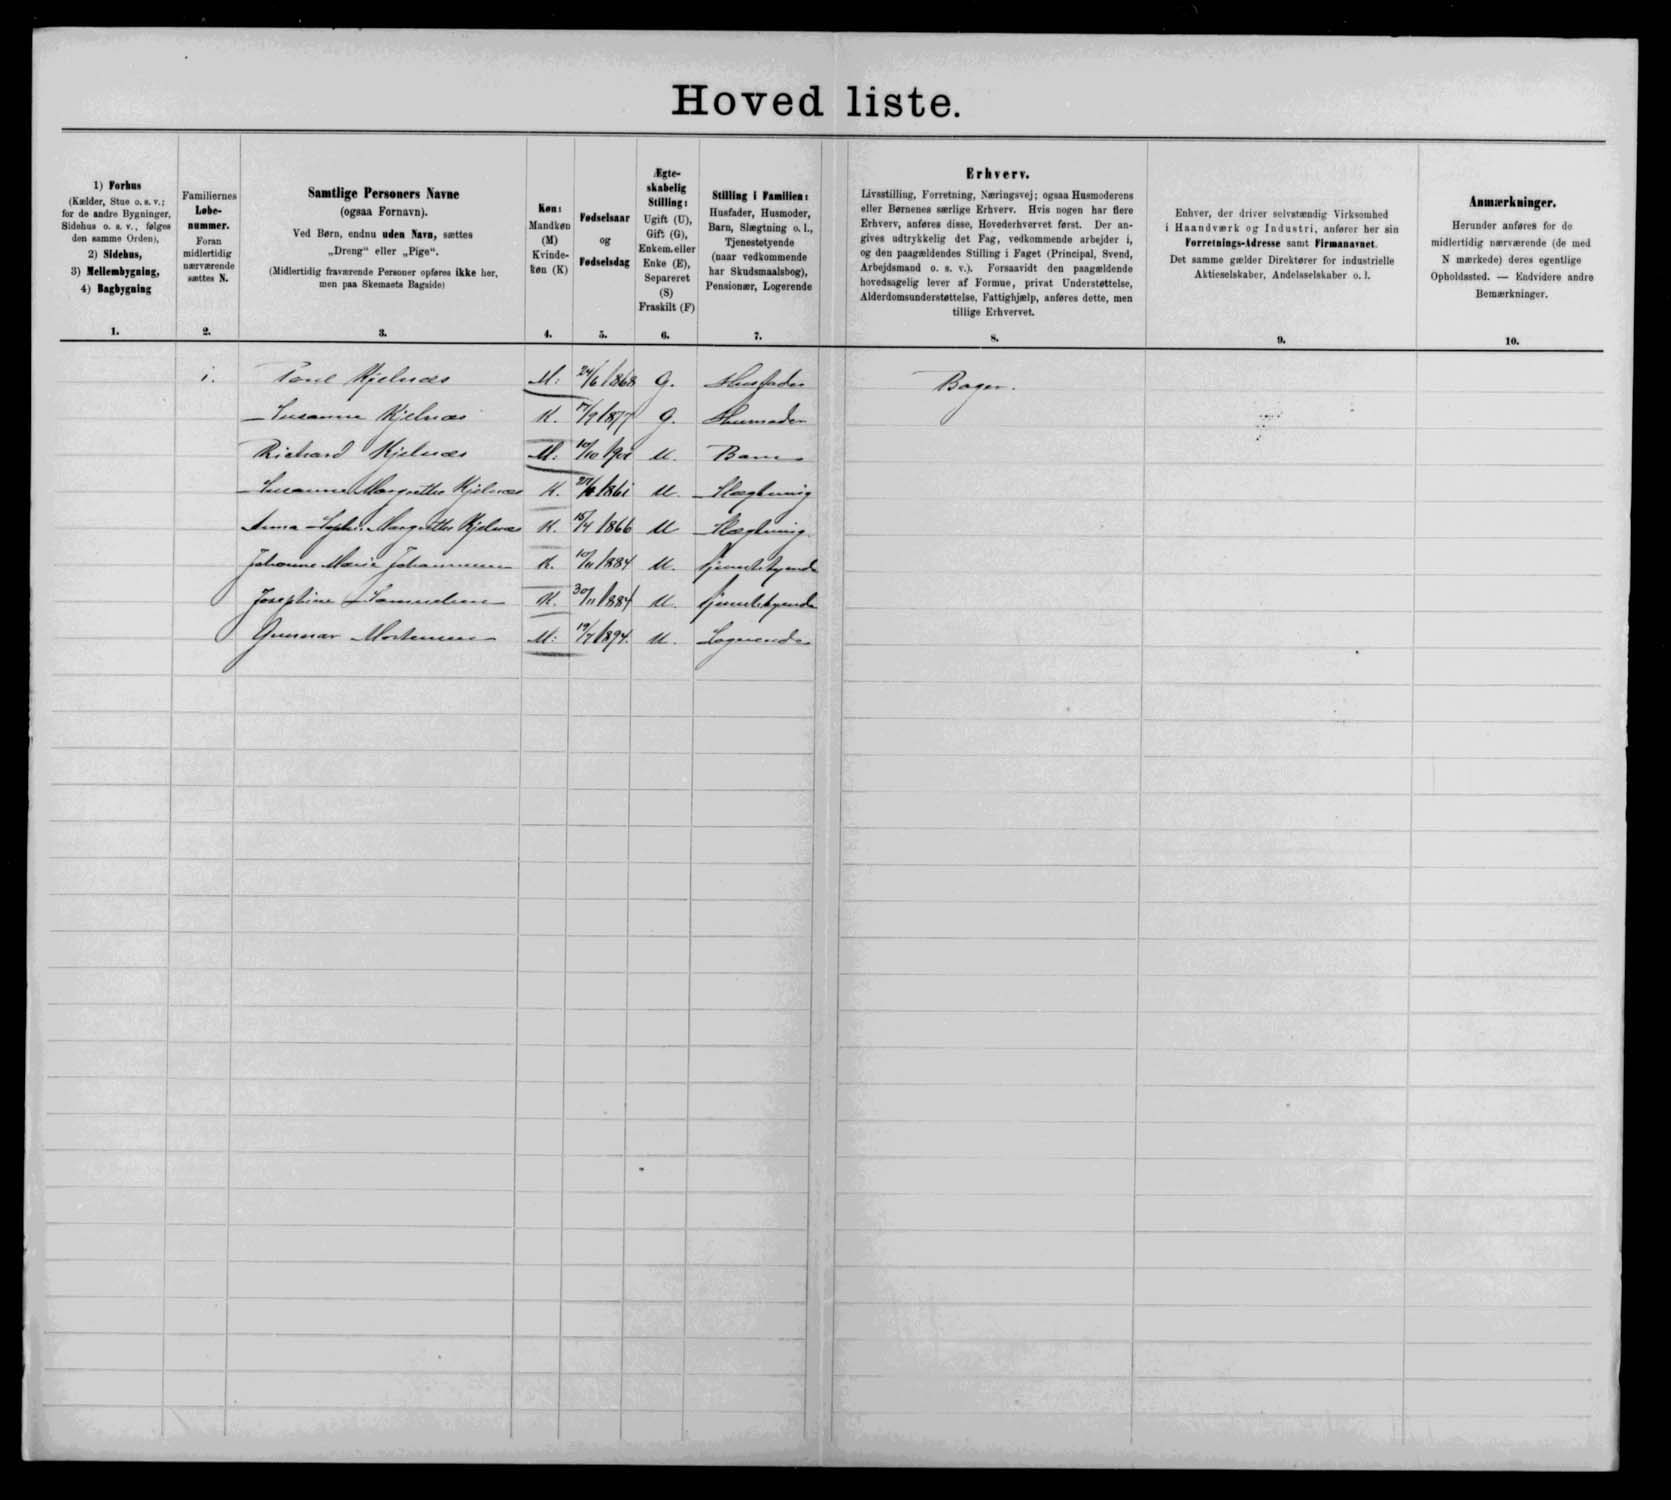 Hoved liste.
1) Forhus
(Kælder, Stue o. s. v.;
for de andre Bygninger,
Sidehus o. s. v., følges
den samme Orden),
2) Sidehus,
3) Mellembygning,
4) Bagbygning
1.
Familiernes
Løbe-
nummer.
Foran
midlertidig
nærværende
sættes N.
2.
Samtlige Personers Navne
(ogsaa Fornavn).
Ved Børn, endnu uden Navn, sættes
„Dreng“ eller „Pige“.
(Midlertidig fraværende Personer opføres ikke her,
men paa Skemaets Bagside)
3.
Køn:
Mandkøn
(M)
Kvinde-
køn (K)
4.
Fødselsaar
og
Fødselsdag
5.
Ægte-
skabelig
Stilling:
Ugift (U),
Gift (G),
Enkem. eller
Enke (E),
Separeret
(S)
Fraskilt (F)
6.
Stilling i Familien:
Husfader, Husmoder,
Barn, Slægtning o. l.,
Tjenestetyende
(naar vedkommende
har Skudsmaalsbog),
Pensionær, Logerende
7.
Erhverv.
Livsstilling, Forretning, Næringsvej; ogsaa Husmoderens
eller Børnenes særlige Erhverv. Hvis nogen har flere
Erhverv, anføres disse, Hovederhvervet først. Der an-
gives udtrykkelig det Fag, vedkommende arbejder i,
og den paagældendes Stilling i Faget (Principal, Svend,
Arbejdsmand o. s. v.). Forsaavidt den paagældende
hovedsagelig lever af Formue, privat Understøttelse,
Alderdomsunderstøttelse, Fattighjælp, anføres dette, men
tillige Erhvervet.
8.
Enhver, der driver selvstændig Virksomhed
i Haandværk og Industri, anfører her sin
Forretnings-Adresse samt Firmanavnet.
Det samme gælder Direktører for industrielle
Aktieselskaber, Andelsselskaber o. l.
9.
Anmærkninger.
Herunder anføres for de
midlertidig nærværende (de med
N mærkede) deres egentlige
Opholdssted. — Endvidere andre
Bemærkninger.
10.
1. Poul Kjelnæs M. 24/6 1868 G. Husfader Bager.
Susanne Kjelnæs K. 17/9 1877 G. Husmoder
Richard Kjelnæs M. 10/10 1901 U. Barn
Susanne Margrethe Kjelnæs K. 1861 U. Slægtning
Anna Sophie Margrethe Kjelnæs K. 15/4 1866 U Slægtning.
Johanne Marie Johannesen K. 10/11 1884 U. tjenestetyende
Josephine Samuelsen K. 30/11 1884 U. tjenestetyende
Gunnar Mortensen M. 19/7 1894. U. Logerende